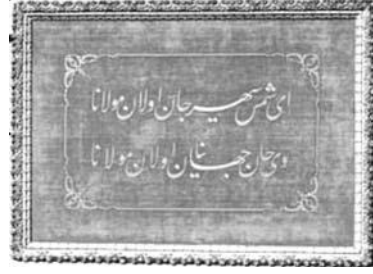 ای شمس سپهر جان اولان مولانا
وی جان جهانیان اولان مولانا